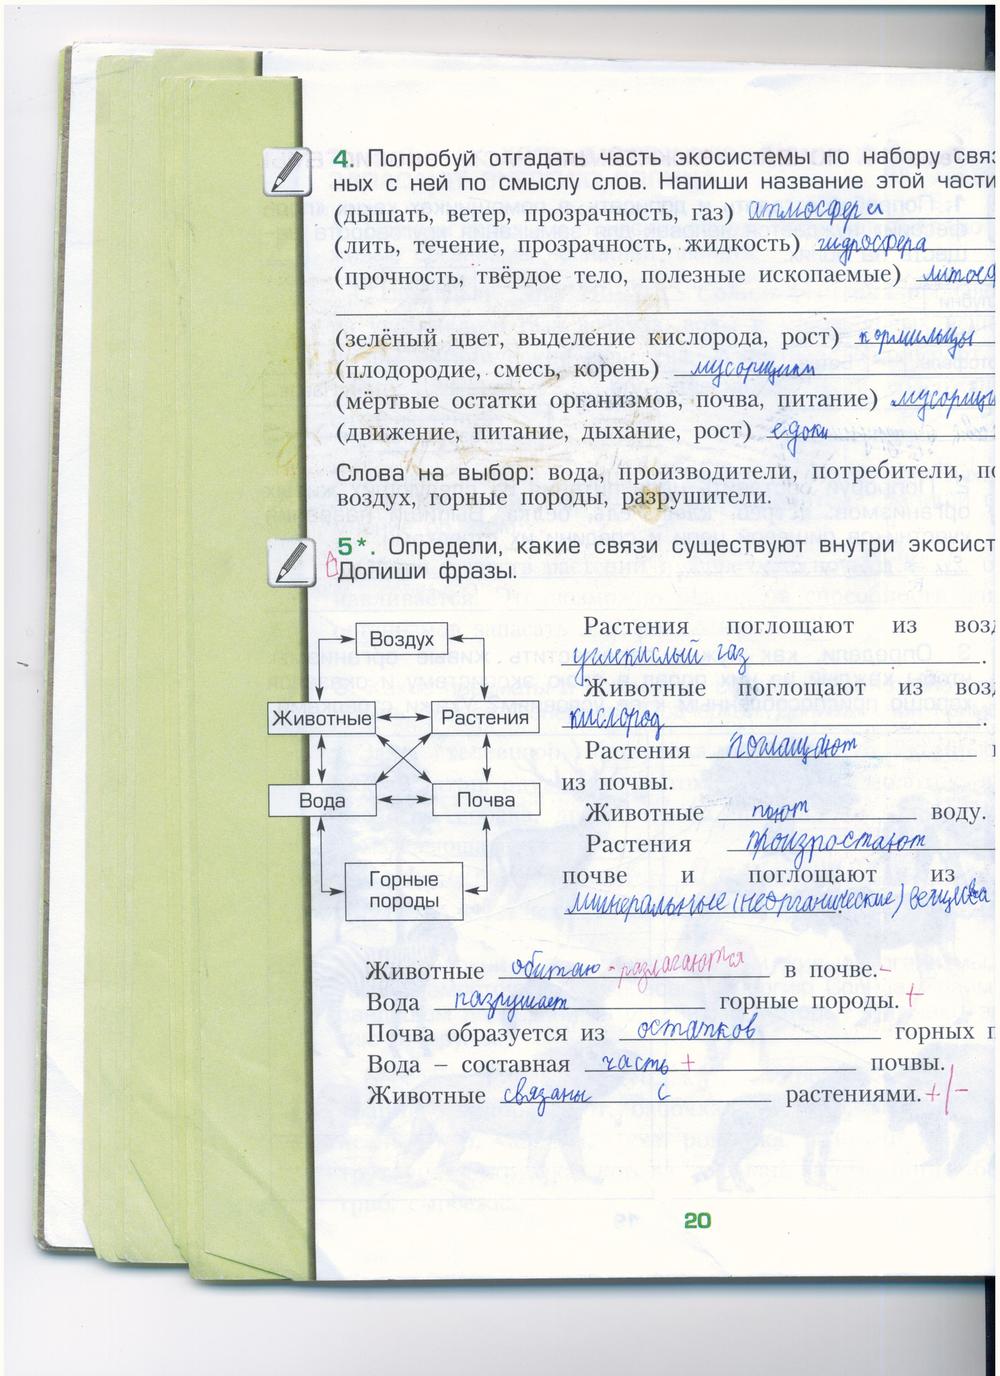 4. Попробуй отгадать часть экосистемы по набору свя
ных с ней по смыслу слов. Напиши название этой части
(дышать, ветер, прозрачность, газ) атмосфера
(лить, течение, прозрачность, жидкость) гидросфера
(прочность, твёрдое тело, полезные ископаемые) литосф
(зелёный цвет, выделение кислорода, рост) кормильцы
(плодородие, смесь, корень) мусорщики
(мёртвые остатки организмов, почва, питание) мусорщи
(движение, питание, дыхание, рост) едоки
Слова на выбор: вода, производители, потребители, по
воздух, горные породы, разрушители.
5*. Определи, какие связи существуют внутри экосист
Допиши фразы.
Воздух
Животные Растения
Вода Почва
Горные
породы
Растения поглощают из возд
углекислый газ .
Животные поглощают из возд
кислород
Растения поглащают
из почвы.
Животные пьют воду.
Растения произростают
почве и поглощают из
минеральные (неорганические) вещества .
Животные обитаю - разлагаются в почве. -
Вода разрушает горные породы. +
Почва образуется из остатков горных п
Вода – составная часть + почвы.
Животные связаны с растениями. +/-
20